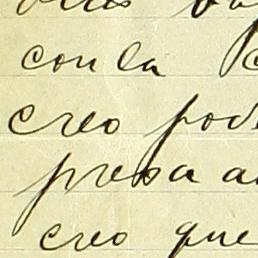 con la
creo pod
presa a
creo que